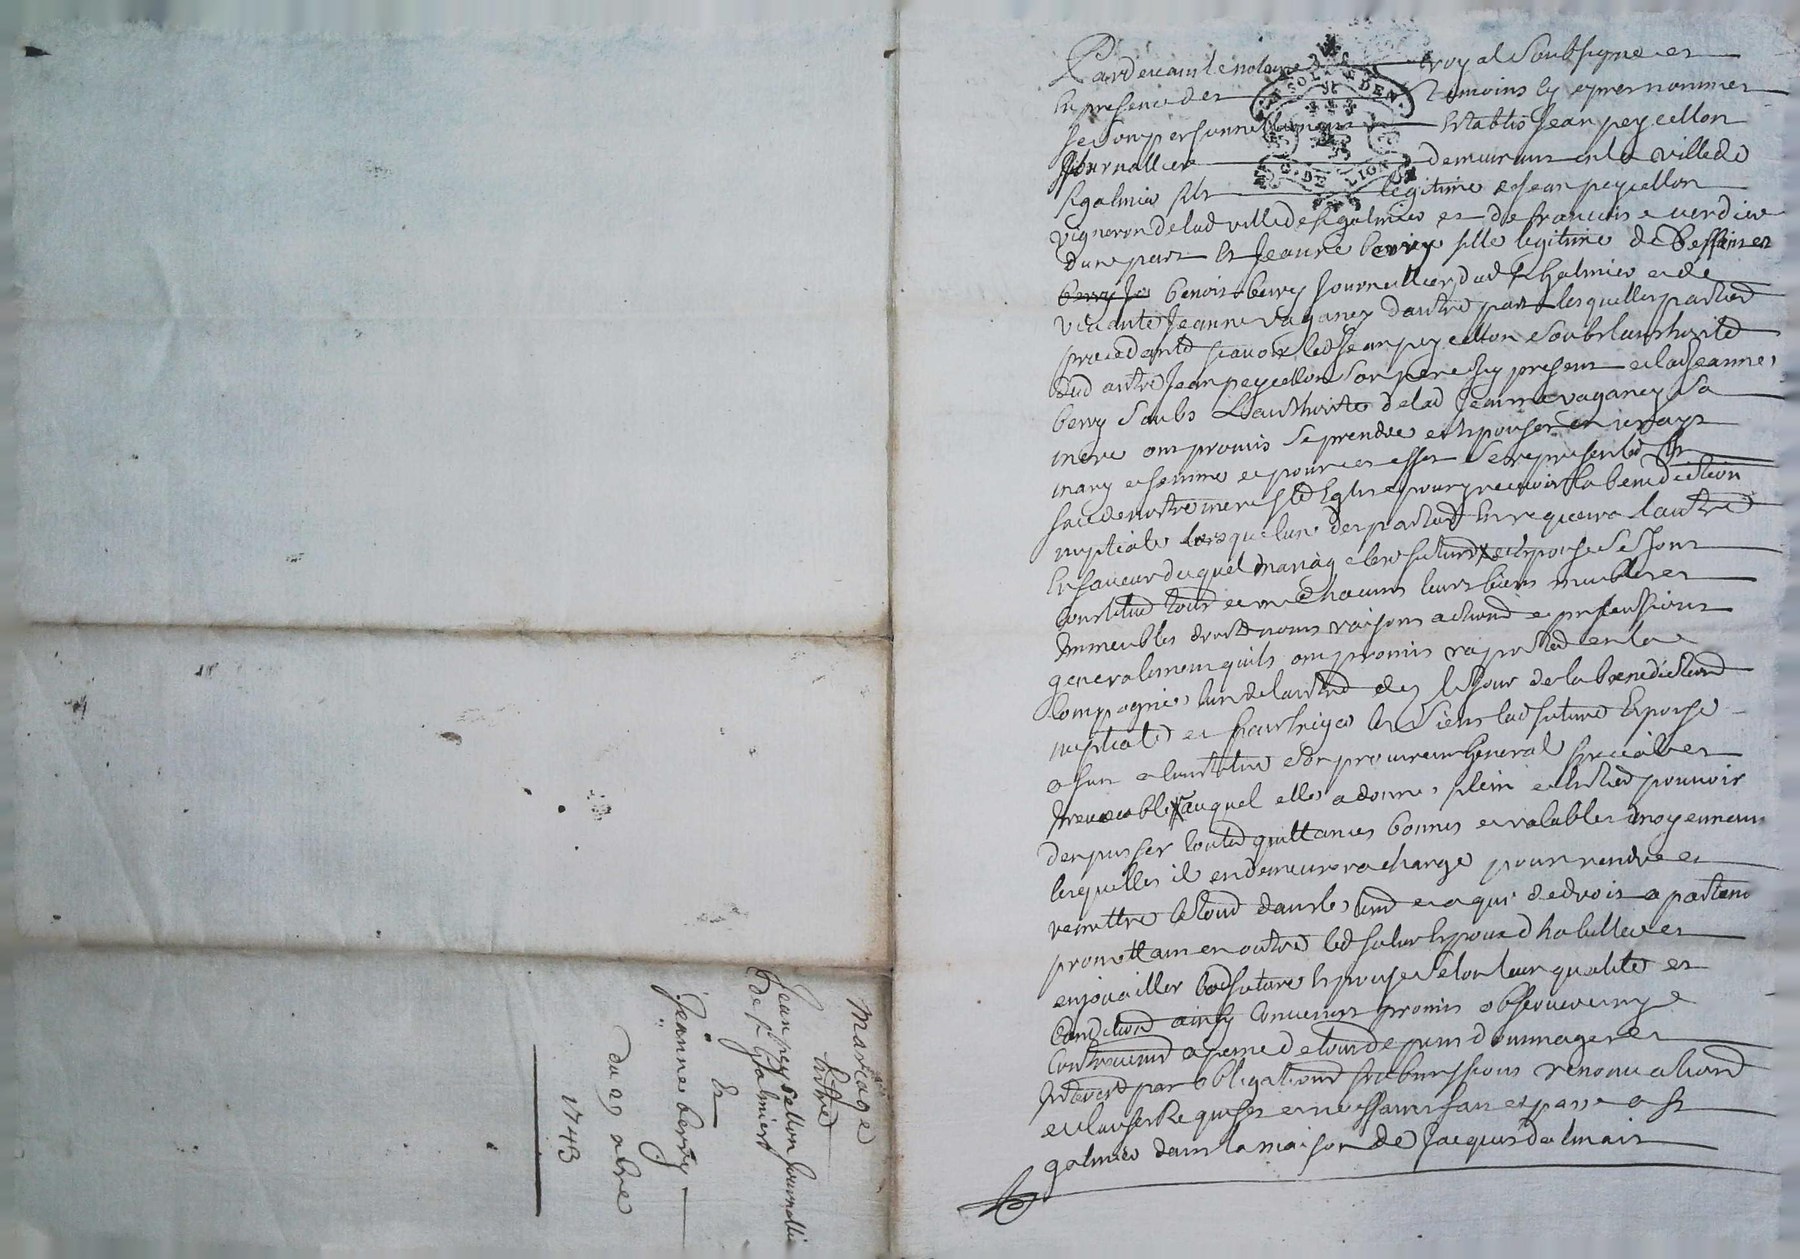 Pardevant le notaire royal soubsigne et
en presence des temoins cy apres nommes
se sont personnellement establis Jean peycellon
Journallier demeurant en la ville de
st galmier fils legitime de Jean peycellon
vigneron de lad ville de st galmier et de francoise verdier
dune part et Jeanne berry fille legitime de deffunct
berry benoist berry Journallier dud st galmier et de
vivante Jeanne vaganey dautre part lesquelles parties
procedants scavoir led Jean peycellon soubs lauthorité
dud autre Jean peycellon son pere icy present et lad Jeanne
berry soubs Lauthorité de lad Jeanne vaganey sa
mere ont promis se prendre et Epouser en vrays
mary et femme et pour cet effet se representer En
face de nostre mere ste Eglise pour y recevoir la benediction
nuptiale lors que lune des parties En requerra lautre
En faveur duquel mariage les futurs epouse se sont
Constitué tous et un chacuns leurs biens meubles et
Immeubles droits noms raisons actions et pretensions
generalement quils ont promis raporter en la
Compagnie lun de lautre des le Jour de la benediction
nuptiale et pour Exiger les siens lad future Epouse
a fait et Constitué son procureur General special et
Irrevocable auquel elle a donné plein et Entier pouvoir
den passer toutes quittances bonnes et valables moyennant
lesquelles il en demeurera chargé pour rendre et
remettre le tout dans les tems et a qui de droit apartiend
promettant en outre led futur Epoux d habiller et
enjoailler lad future Epouse selon leur qualité et
Condition ainsy Convenus promis observer ny
Contrevenir a peine de tous depans dommages et
Interest par obligations submissions renonciations
et clauses Requises et necessaires fait et passé a st
galmier dans la maison de Jacques dalmais
Mariage
Entre
Jean peycellon Journallier
de st Galmier
Et
Jeanne berry
du 29 obre
1743